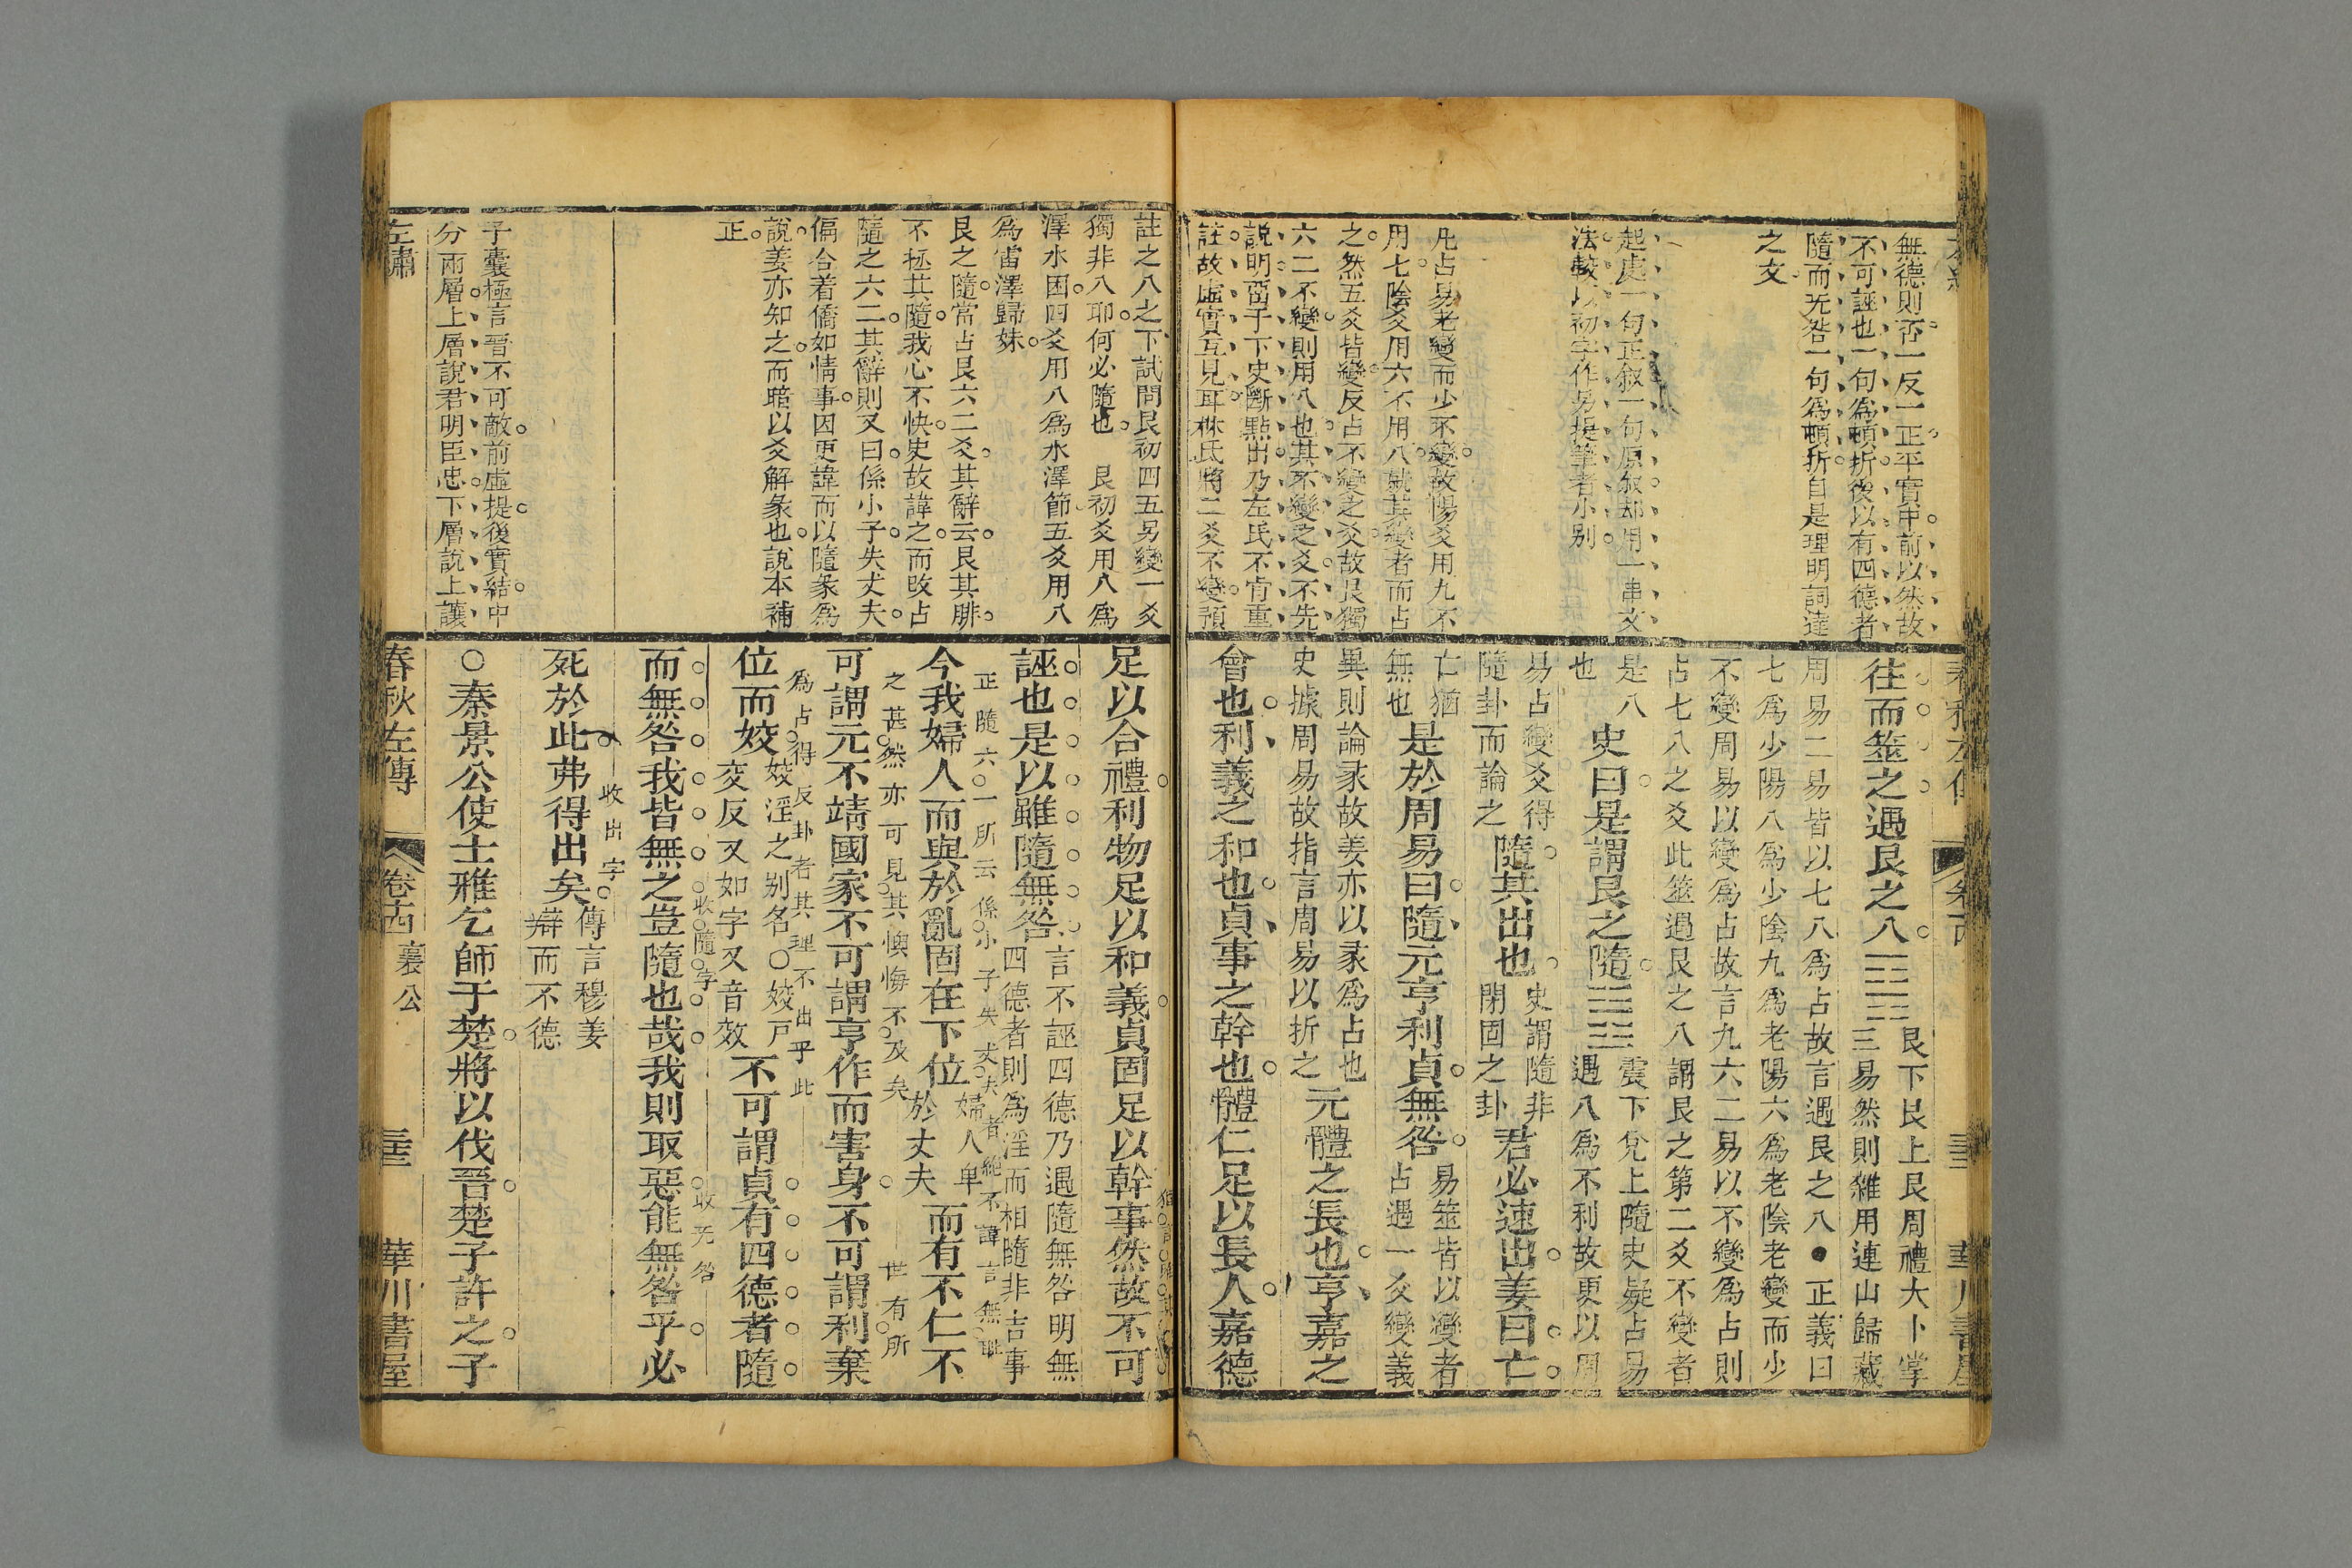 無德則否一反一正平實申前以然故
不可誣也一句爲頓折後以有四德者
隨而无咎一句爲頓折自是理明詞達
之文
起處一句正叙一句原叙却用一串文
法較以初字作另提筆者小別
凡占易老變而少不變故陽爻用九不
用七陰爻用六不用八就其變者而占
之然五爻皆變反占不變之爻故艮獨
六二不變則用八也其不變之爻不先
說明留于下史斷點出乃左氏不肯重
註故虛實互見耳林氏將二爻不變預
往而筮之遇艮之八
艮下艮上艮周禮大卜掌
三易然則雜用連山歸藏
周易二易皆以七八爲占故言遇艮之八●正義曰
七爲少陽八爲少陰九爲老陽六爲老陰老變而少
不變周易以變爲占故言九六二易以不變爲占則
占七八之爻此筮遇艮之八謂艮之第二爻不變者
是八
也
史曰是謂艮之隨
震下兌上隨史疑占易
遇八爲不利故更以周
易占變爻得
隨卦而論之
隨其出也
史謂隨非
閉固之卦
君必速出姜曰亡
亡猶
無也
是於周易曰隨元亨利貞無咎
易筮皆以變者
占遇一爻變義
異則論彖故姜亦以彖爲占也
史據周易故指言周易以折之
元體之長也亨嘉之
會也利義之和也貞事之幹也體仁足以長人嘉德
註之八之下試問艮初四五另變一爻
獨非八耶何必隨也　艮初爻用八爲
澤水困四爻用八爲水澤節五爻用八
爲雷澤歸妹
艮之隨常占艮六二爻其辭云艮其腓
不拯其隨我心不快史故諱之而攺占
隨之六二其辭則又曰係小子失丈夫
偏合着僑如情事因更諱而以隨彖爲
說姜亦知之而暗以爻解彖也說本補
正
子囊極言晉不可敵前虛提後實結中
分兩層上層說君明臣忠下層說上讓
左繡
足以合禮利物足以和義貞固足以幹事然故不可
誣也是以雖隨無咎
言不誣四德乃遇隨無咎明無
四德者則爲淫而相隨非吉事
正隨六一所云係小子失丈夫者絶不諱言無恥
今我婦人而與於亂固在下位
婦人卑
於丈夫
而有不仁不
之甚然亦可見其懊悔不及矣
世有所
可謂元不靖國家不可謂亨作而害身不可謂利棄
爲占得反卦者其理不出乎此
位而姣
姣淫之別名○姣戸
交反又如字又音效
不可謂貞有四德者隨
收隨字
收无咎
而無咎我皆無之豈隨也哉我則取惡能無咎乎必
收出字
死於此弗得出矣
傳言穆姜
辯而不德
○秦景公使士雃乞師于楚將以伐晉楚子許之子
春秋左傳
卷十四
襄公
華川書屋